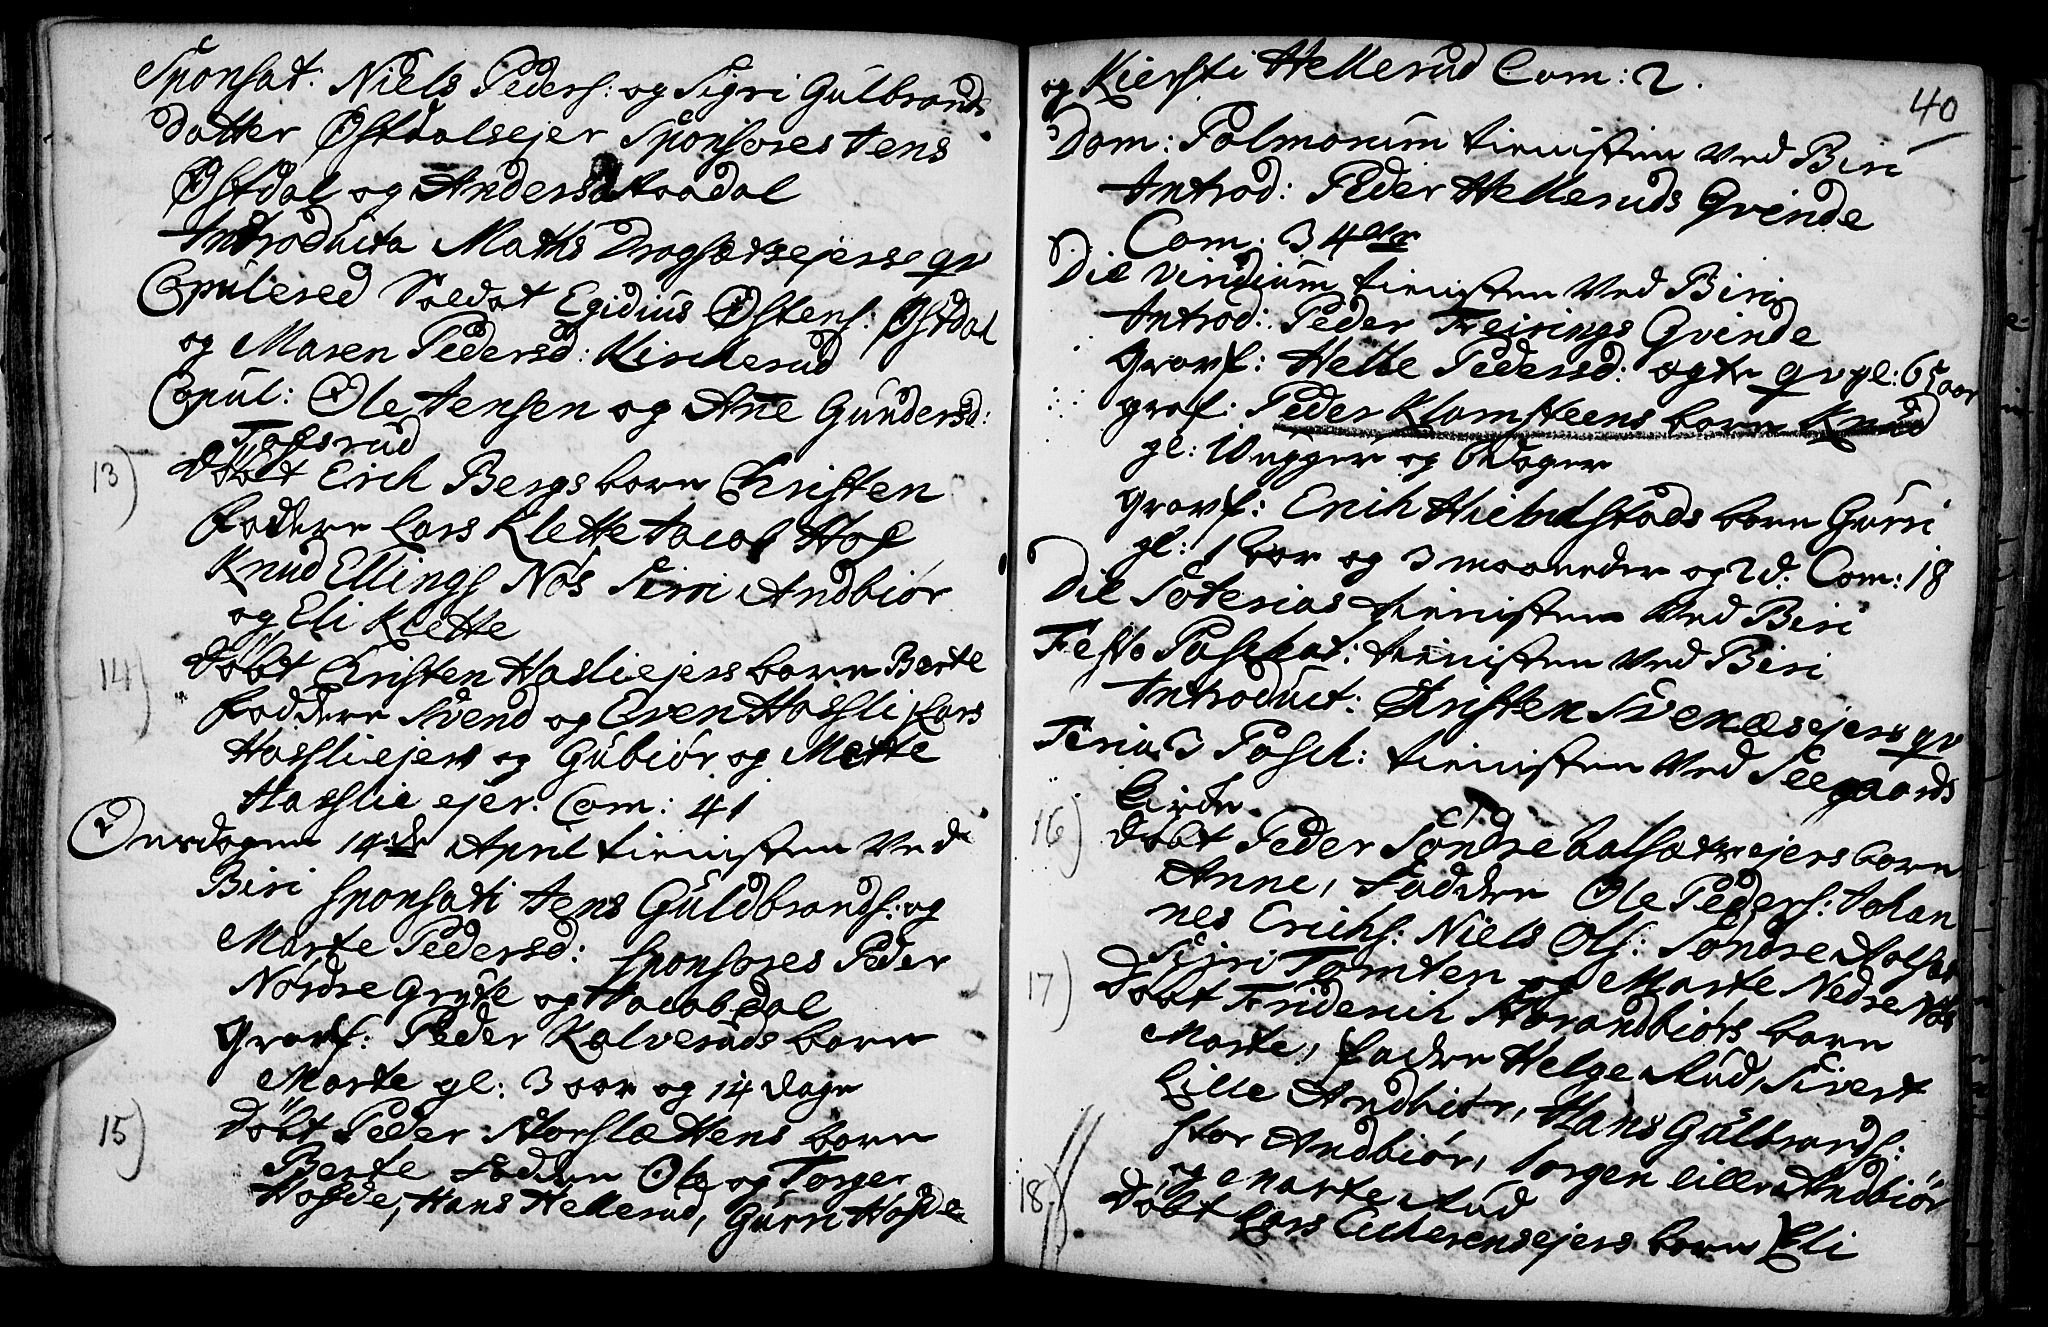 Sponsat: Niels Peders: og Sigri Gulbrands
datter Østdalsejer Sponsores Jens
Østdal og Anders Aadal
Introducta Mathis Dragsætsejerse qv
Copulered Soldat Egidius Østens: Østdal
og Maren Pedersd: Kircherud
Copul: Ole Jensen og Ane Gundersd:
Fjøsrud
13) Døbt Erich Bergs barn Christen
faddere Lars Klette Jacob Hof
Knud Ellings Nøs Siri Andbiør
og Eli Klette
14) Døbt Christen Hasliejers barn Berte
faddere Svend og Even Hassli Lars
Hassliejers og Gubiør og Mette
Hasslie ejer. Com: 41
Onsdagen 14de April tienisten ved
Biri Sponsati Jens Guldbrands: og
Marte Pedersd: Sponsores Peder
Nordre Gryte og Jacob Dal
Graf: Peder Kalveruds barn
Marte gl: 3 aar og 14 dage
15) Døbt Peder Storslættens barn
Berte faddere Ole og Torger
Hofde, Hans Hellerud, Gurri Hofde
og Kiersti Hellerud Com: 2.
40
Dom: Palmarum tienisten ved Biri
Introd: Peder Helleruds Qvinde
Com: 34
Die Viridium tienisten ved Biri
Introd: Peder Freisings Qvinde
Graf: Helle Pedersd: ogte qv gl: 65 aar
graf: Peder Klomsteens barn Knud
gl: 10 ugger og 6 dager
Graf: Erich Hielmstads barn Gurri
gl: 1 aar og 3 maaneder og 2 d. Com: 18
Die Soterias tienisten ved Biri
Festo Paschat: tienisten ved Biri
Introduct: Christen Svenæsejers qv
Feria 3 Pasch: tienisten ved Seegaards
Kirke.
16) Døbt Peder Søndre Aalsætejers barn
Anne, Faddere Ole Peders: Johan
nes Erichs: Niels Ols: Søndre Aalsæt
Sigri Tomten og Marte Nedre
17) Døbt Friderich Strandbiørs barn
Marte, Faddere Helge Rud, Sivert
Lille Andbiør, Hans Gulbrands:
Stor Andbiør, Jorgen lille Andbiør
og Marte Rud
18) Døbt Lars Eicherensejers barn Eli